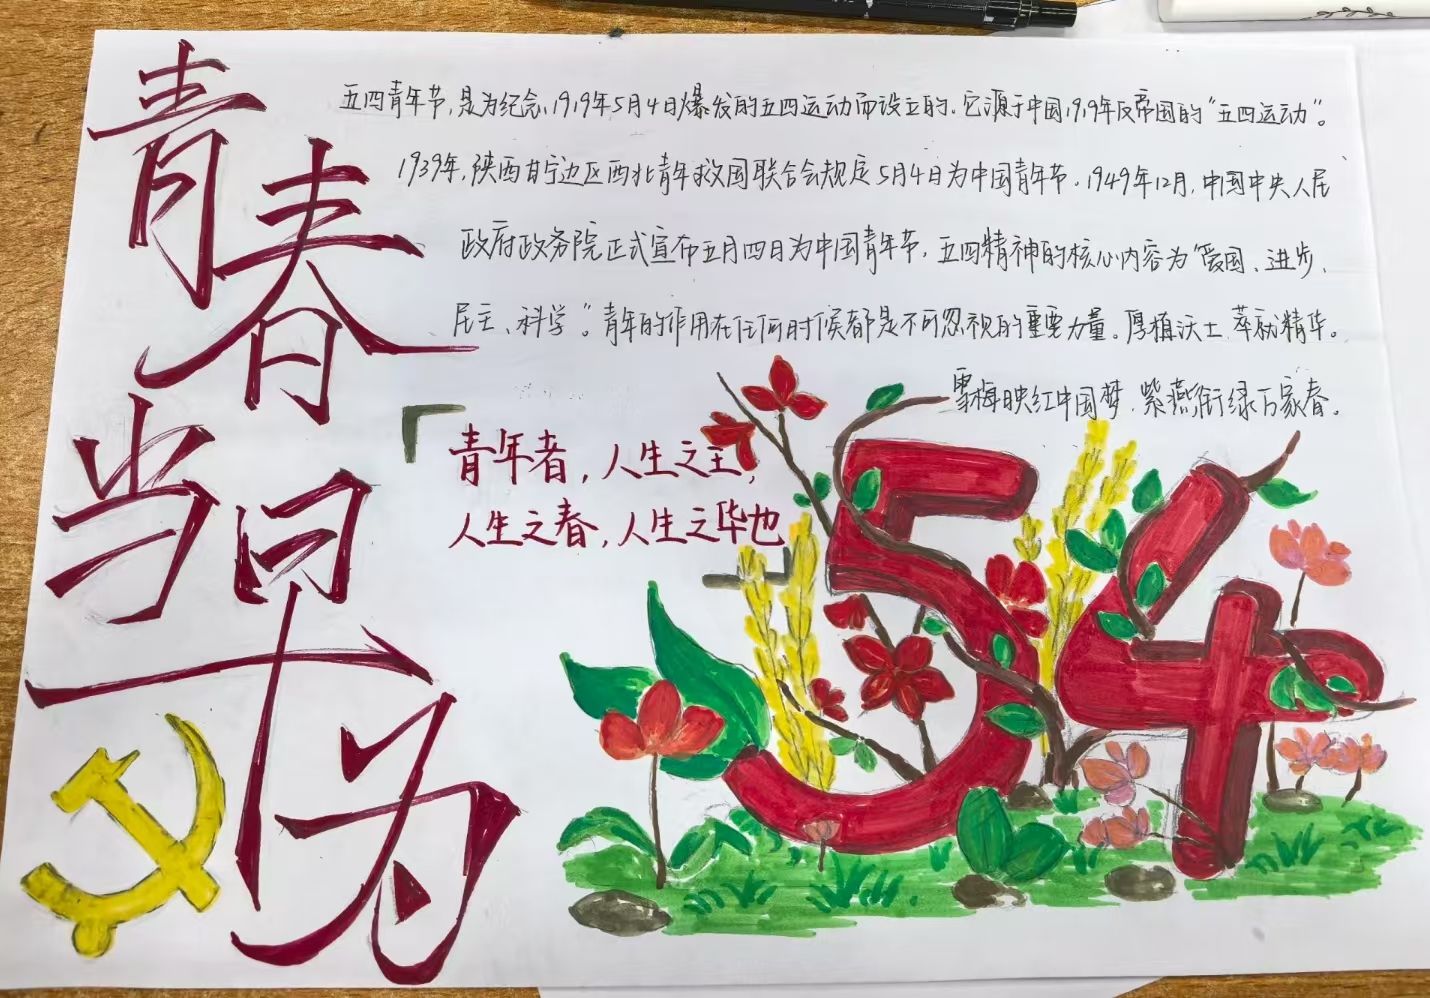 青春当有为
五四青年节，是为纪念1919年5月4日爆发的五四运动而设立的。它源于中国1919年反帝国的“五四运动”。
1939年，陕西甘宁边区西北青年救国联合会规定5月4日为中国青年节。1949年12月，中国中央人民
政府政务院正式宣布五月四日为中国青年节，五四精神的核心内容为“爱国、进步、
民主、科学”。青年的作用在任何时候都是不可忽视的重要力量。厚植沃土，萃就精华。
雪梅映红中国梦，紫燕衔绿万家春。
青年者，人生之王，
人生之春，人生之华也
54